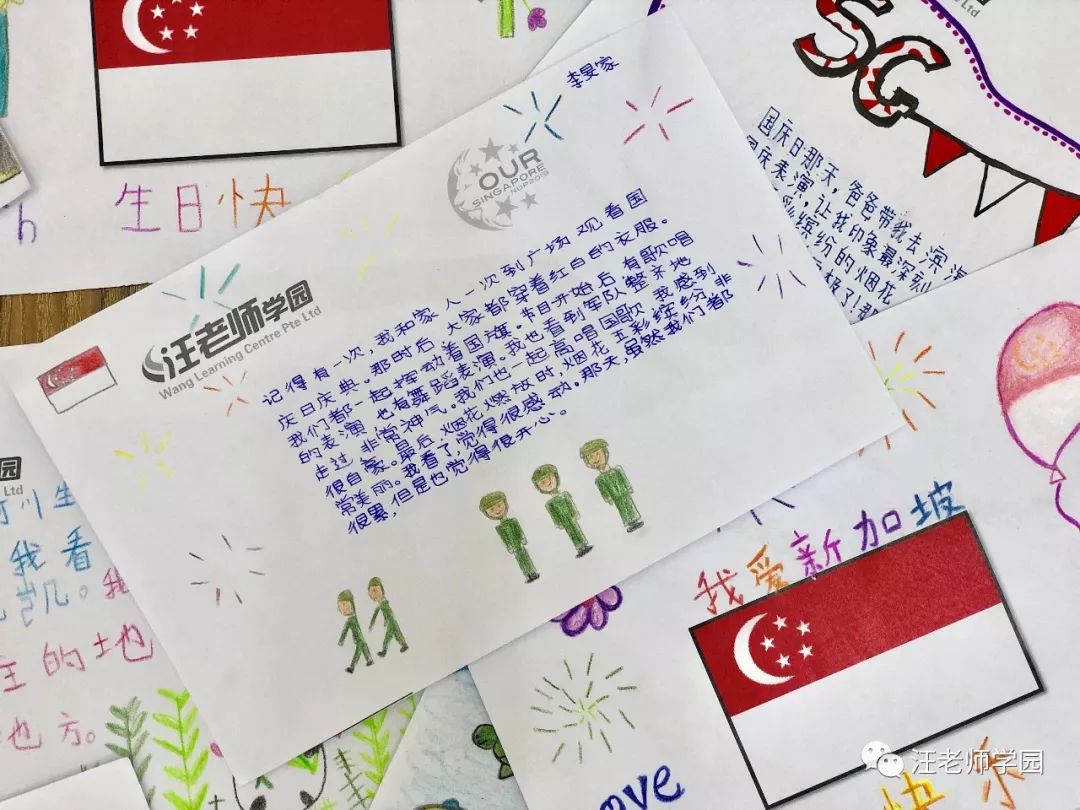 SG
生日快
李旻家
OUR
SINGAPORE
NDP2019
汪老师学园
Wang Learning Centre Pte Ltd
记得有一次,我和家人一次到广场观看国
庆日庆典。那时后大家都穿着红白的衣服。
我们都一起挥动着国旗。节日开始后,有歌唱
的表演,也有舞蹈表演。我也看到军队整齐地
走过,非常神气。我们也一起高唱国歌,我感到
很自豪。最后,烟花燃放时,烟花五彩缤纷,非
常美丽。我看了,觉得很感动。那天,虽然我们都
很累,但是也觉得很开心。
国庆日那天,爸爸带我去滨海
庆表演,让我印象最深刻
缤纷的烟花
园
Ltd
川生
我看
主的地
也方。
我爱新加坡
快乐
汪老师学园